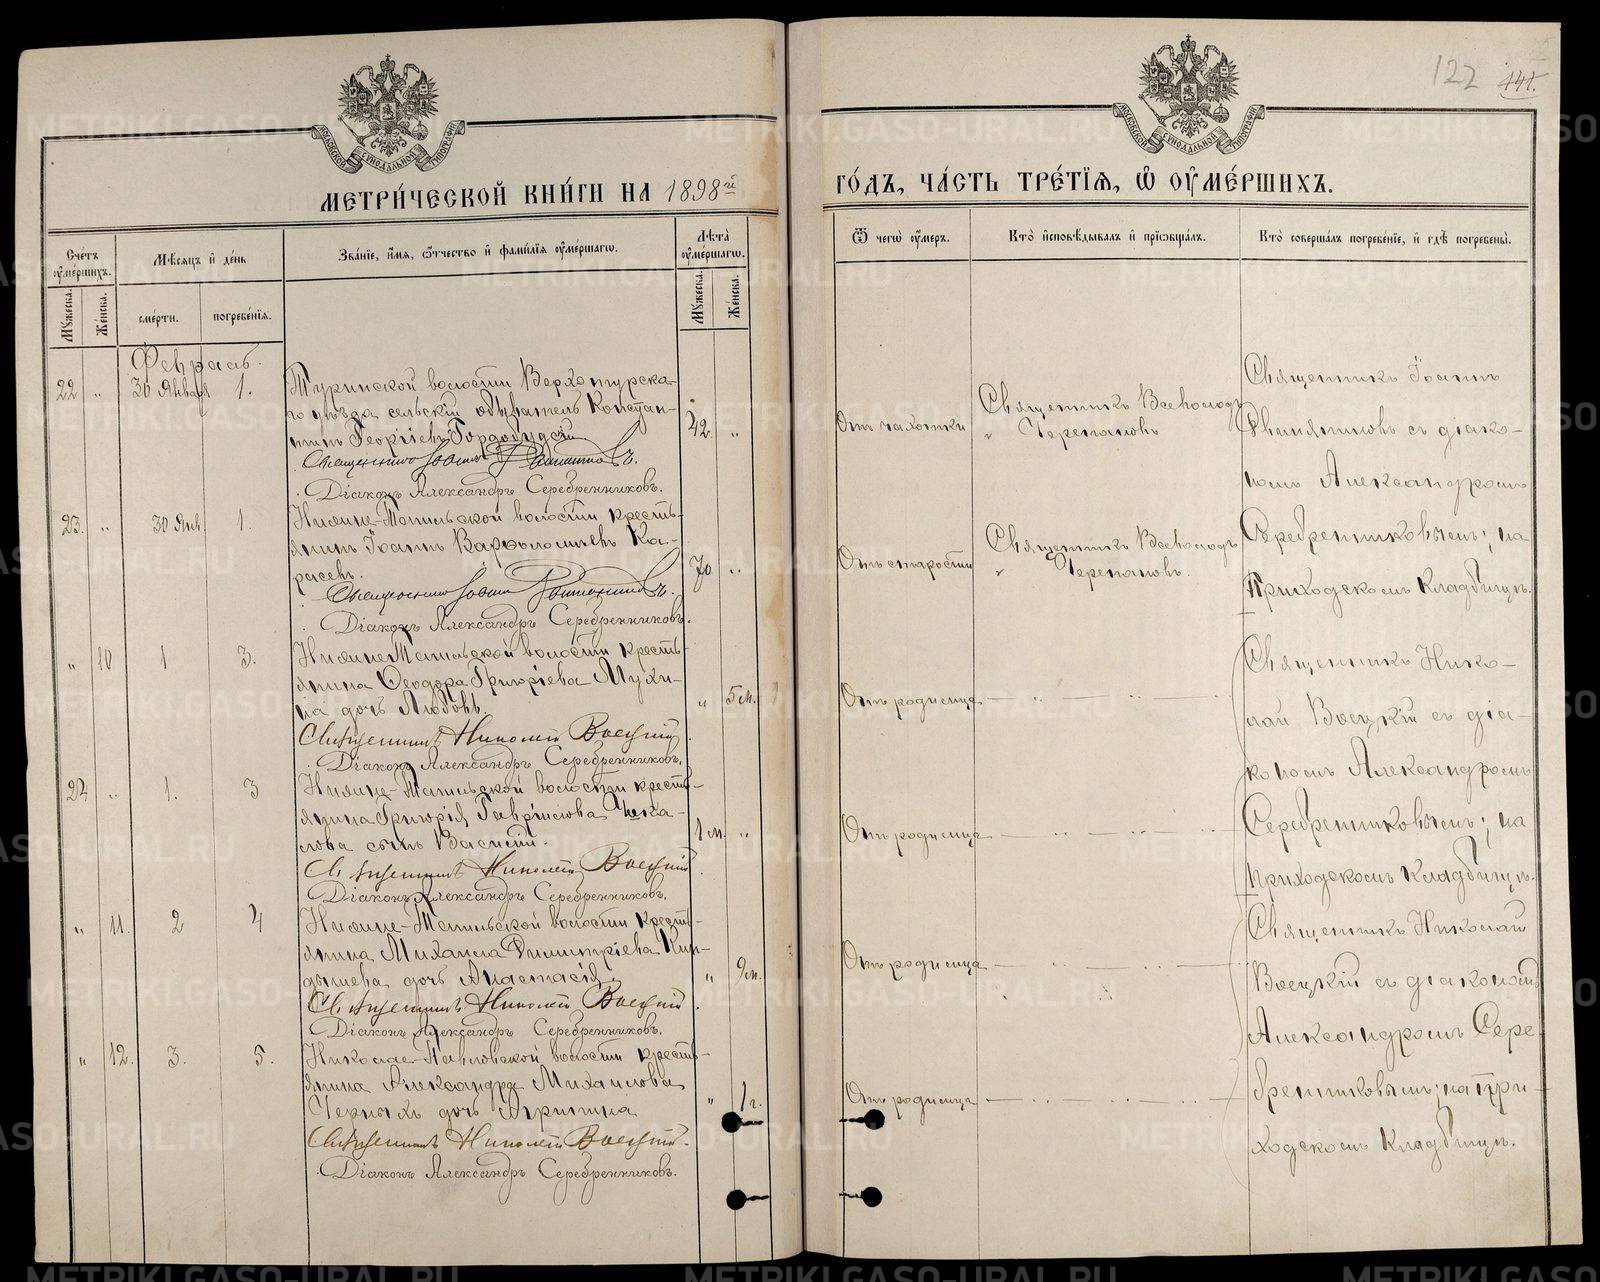 122 141.
МОСКОВСКОЙ СѴНОДАЛЬНОЙ ТИПОГРАФІИ
МОСКОВСКОЙ СѴНОДАЛЬНОЙ ТИПОГРАФІИ
МЕТРИ́ЧЕСКОЙ КНИ́ГИ НА 1898й
ГО́ДЪ, ЧА́СТЬ ТРЕ́ТІѦ, Ѡ҆ ОУ҆МЕ́РШИХЪ.
Сче́тъ оу҆ме́ршихъ.
Мѣ́сѧцъ и҆ де́нь
Зва́нїе, и҆́мѧ, ѻ҆́тчество и҆ фамі́лїѧ оу҆ме́ршагѡ.
Лѣ́та оу҆ме́ршагѡ.
Мꙋ́жеска.
Же́нска.
сме́рти.
погребе́нїѧ.
Мꙋ́жеска.
Же́нска.
Ѿ чегѡ̀ оу҆́меръ.
Кто̀ и҆сповѣ́дывалъ и҆ прїѡбща́лъ.
Кто̀ соверша́лъ погребе́нїе, и҆ гдѣ̀ погребены̀.
Февраль.
22 " 30 Января 1.
Туринской волости Верхотурска-
го уѣзда сельскій обыватель Констан-
тинъ Георгіевъ
42. "
Священникъ Іоаннъ
Діаконъ Александръ Серебренниковъ.
Отъ чахотки
Священникъ Всеволодъ
" Черепановъ
Священникъ Іоаннъ
съ діако-
номъ Александромъ
Серебренниковымъ; на
Приходскомъ Кладбищѣ.
23. " 30 Янв 1.
Нижне-Тагильской волости кресть-
янинъ Іоаннъ Варѳоломеевъ Ка-
расевъ.
70 "
Священникъ Іоаннъ
Діаконъ Александръ Серебренниковъ.
Отъ старости
Священникъ Всеволодъ
" Черепановъ.
" 10 1 3.
Нижне-Тагильской волости кресть-
янина Ѳеодора Григоріева Мухи-
на дочь Любовь.
" 5 м.
Священникъ Николай Воецкій
Діаконъ Александръ Серебренниковъ.
Отъ родимца — " — " —
Священникъ Нико-
лай Воецкій съ діа-
кономъ Александромъ
Серебренниковымъ; на
приходскомъ Кладбищѣ.
24 " 1. 3
Нижне-Тагильской волости кресть-
янина Григорія Гавріилова Чека-
лова сынъ Василій.
1 м. "
Священникъ Николай Воецкій
Діаконъ Александръ Серебренниковъ.
Отъ родимца — " — " —
" 11. 2 4
Нижне-Тагильской волости кресть-
янина Михаила Димитріева Кин-
дышева дочь Анастасія.
" 9 м.
Священникъ Николай Воецкій
Діаконъ Александръ Серебренниковъ.
Отъ родимца — " — " —
Священникъ Николай
Воецкій съ діакономъ
Александромъ Сере-
бренниковымъ; на При-
ходскомъ Кладбищѣ.
" 12. 3. 5.
Николае-Павловской волости кресть-
янина Александра Михаилова
Черныхъ дочь Агрипина
" 1 г.
Священникъ Николай Воецкій.
Діаконъ Александръ Серебренниковъ.
Отъ родимца — " — " —
METRIKI.GASO-URAL.RU